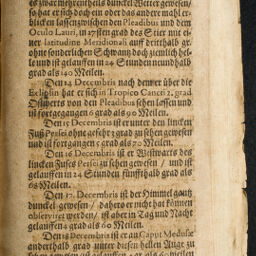 es zwar mehrentheils dunckel Wetter gewesen/
so hat er sich doch ein oder das andere mahl er-
blicken lassen zwischen den Pleadibus und dem
Oculo Lauri, in 27sten grad des Stier mit ei-
ner latitudine Meridionali auff dritthalb gr.
ohne sonderlichen Schwantz doch ziemlich hel-
le und ist gelauffen in 24 Stunden neundhalb
grad als 140 Meilen.
Den 14 Decembris nach dem er über die
Ecliptin hat er sich in Tropico Cancri 2. grad
Ostwerts von den Pleadibus sehen lassen und
ist fortgegangen 6 grad als 90 Meilen.
Den 15 Decembris ist er unter den lincken
Fuß Persei ohne gefehr 2 grad zu sehen gewesen
und ist fortgangen 5 grad als 70 Meilen.
Den 16 Decembris ist er Westwarts des
lincken Fusses Persei zu sehen gewesen / und ist
gelauffen in 24 Stunden fünfthalb grad als
68 Meilen.
Den 17. Decembris ist der Himmel gantz
dunckel gewesen / dahero er nicht hat können
observiret werden/ ist aber in Tag und Nacht
gelauffen 4 grad als 60 Meilen.
Den 18 Decembris ist er an Caput Medusæ
anderthalb grad unter diesen hellen Auge zu